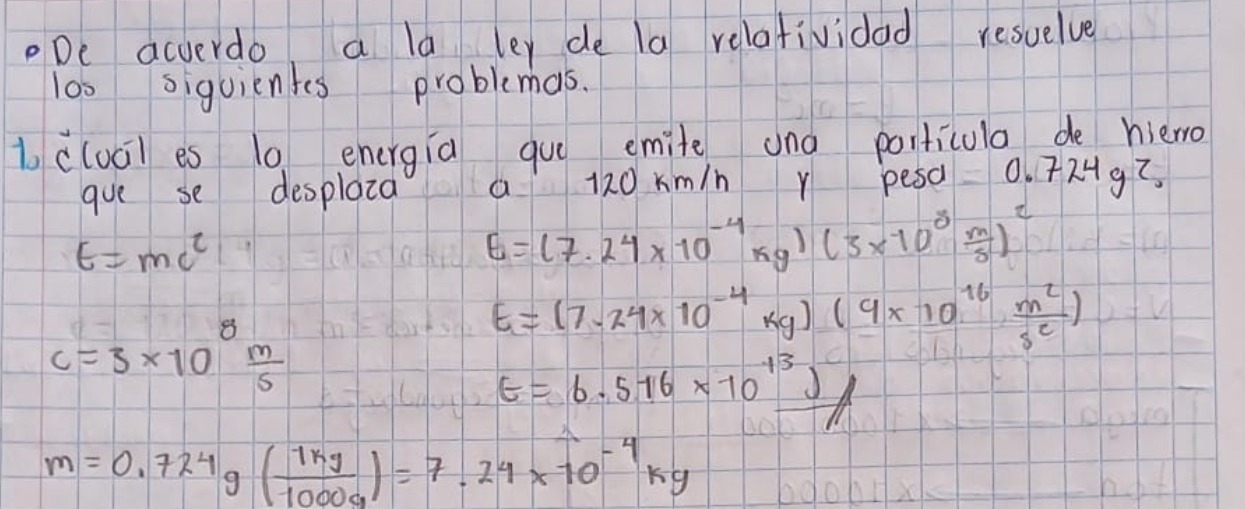 • De acuerdo a la ley de la relatividad resuelve
los siguientes problemas.
1. ¿Cuál es la energía que emite una partícula de hierro
que se desplaza a 120 km/h y pesa 0.724 g?.
E = mc² E = (7.24 × 10⁻⁴ kg) (3 × 10⁸ m/s)²
E = (7.24 × 10⁻⁴ kg) (9 × 10¹⁶ m²/s²)
c = 3 × 10⁸ m/s
E = 6.516 × 10⁺¹³ J //
m = 0.724 g (1kg/1000g) = 7.24 × 10⁻⁴ kg